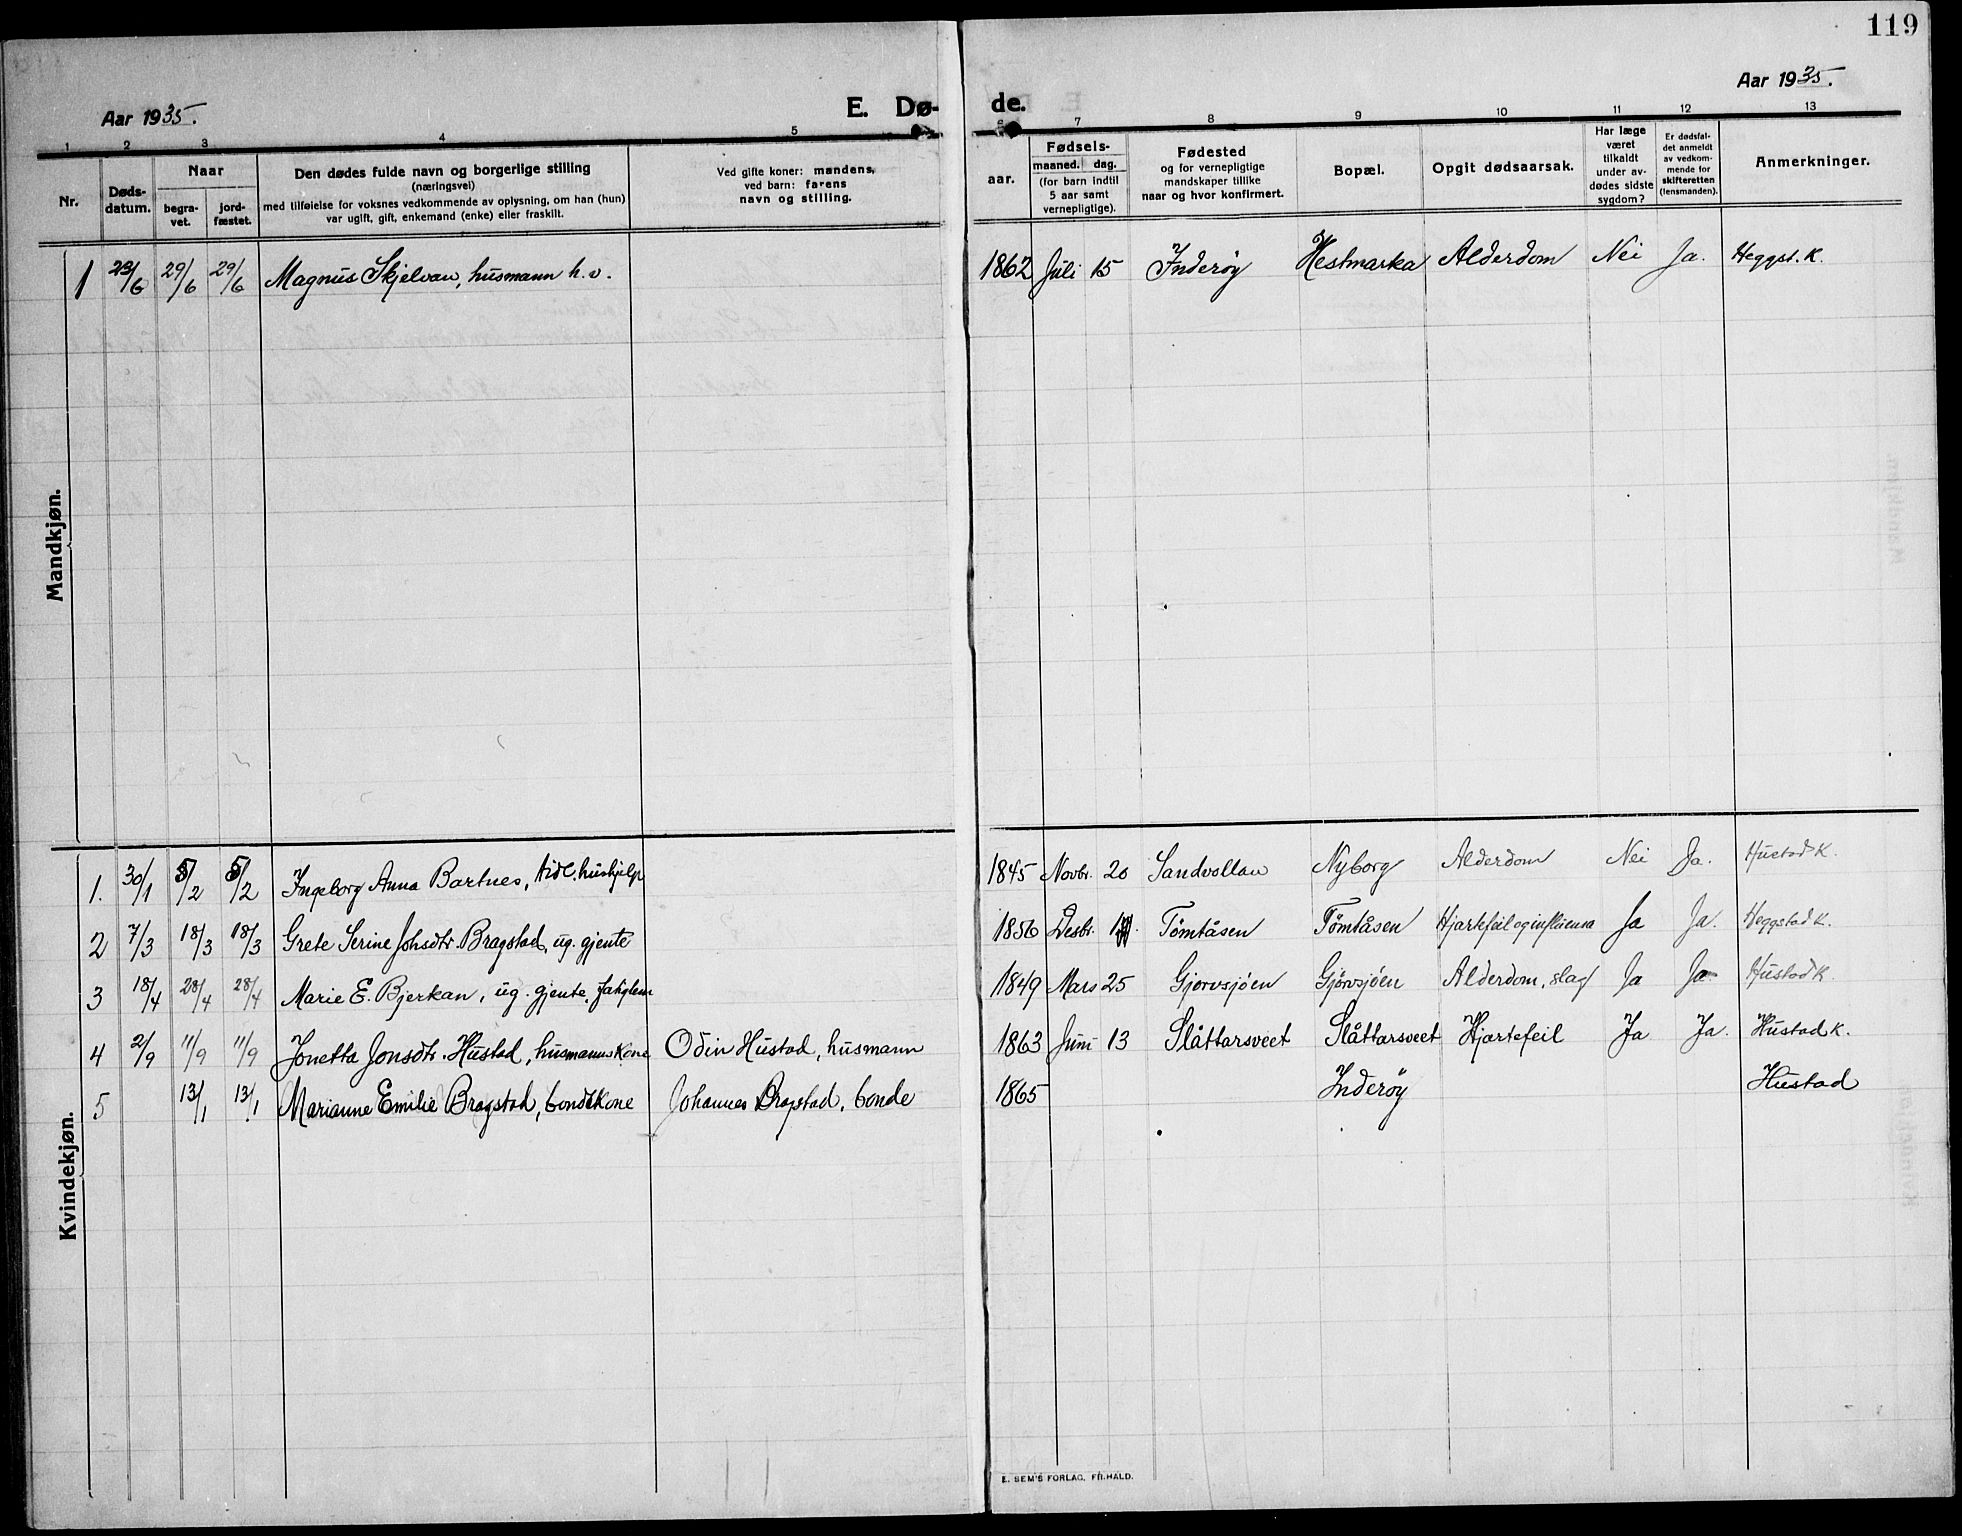 119
Aar 1935. E. Dø-
de. Aar 1935.
1 2 3 4 5
6 7 8 9 10 11 12 13
Nr.
Døds-
datum.
Naar
begra-
vet.
jord-
fæstet.
Den dødes fulde navn og borgerlige stilling
(næringsvei)
med tilføielse for voksnes vedkommende av oplysning, om han (hun)
var ugift, gift, enkemand (enke) eller fraskilt.
Ved gifte koner: mandens,
ved barn: farens
navn og stilling.
aar.
Fødsels-
maaned. dag.
(for barn indtil
5 aar samt
vernepligtige).
Fødested
og for vernepligtige
mandskaper tillike
naar og hvor konfirmert.
Bopæl.
Opgit dødsaarsak.
Har læge
været
tilkaldt
under av-
dødes sidste
sygdom?
Er dødsfal-
det anmeldt
av vedkom-
mende for
skifteretten
(lensmanden).
Anmerkninger.
Mandkjøn.
1 23/6 29/6 29/6 Magnus Skjelvan, husmann h.v. 1862 Juli 15 Inderøy Hestmarka Alderdom Nei Ja. Heggst. K.
Kvindekjøn.
1. 30/1 5/2 5/2 Ingeborg Anna Bartnes, tidl. hushjelp 1845 Novbr. 20 Sandvollan Nyborg Alderdom Nei Ja. Hustad K.
2 7/3 18/3 18/3 Grete Serine Johsdtr. Bragstad, ug. gjente 1856 Desbr. Tømtåsen Tømtåsen Hjartefeil og influensa Ja Ja. Heggstad K.
3 18/4 28/4 28/4 Marie E. Bjerkan, ug. gjente, fattiglem 1849 Mars 25 Gjørvsjøen Gjørvsjøen Alderdom, slag Ja Ja Hustad K
4 2/9 11/9 11/9 Jonetta Jonsdtr. Hustad, husmannskone Odin Hustad, husmann 1863 Juni 13 Slåttarsveet Slåttarsveet Hjartefeil Ja Ja. Hustad K.
5 13/1 13/1 Marianne Emilie Bragstad, bondekone Johannes Bragstad, bonde 1865 Inderøy Hustad
E. SEM'S FORLAG, FR.HALD.